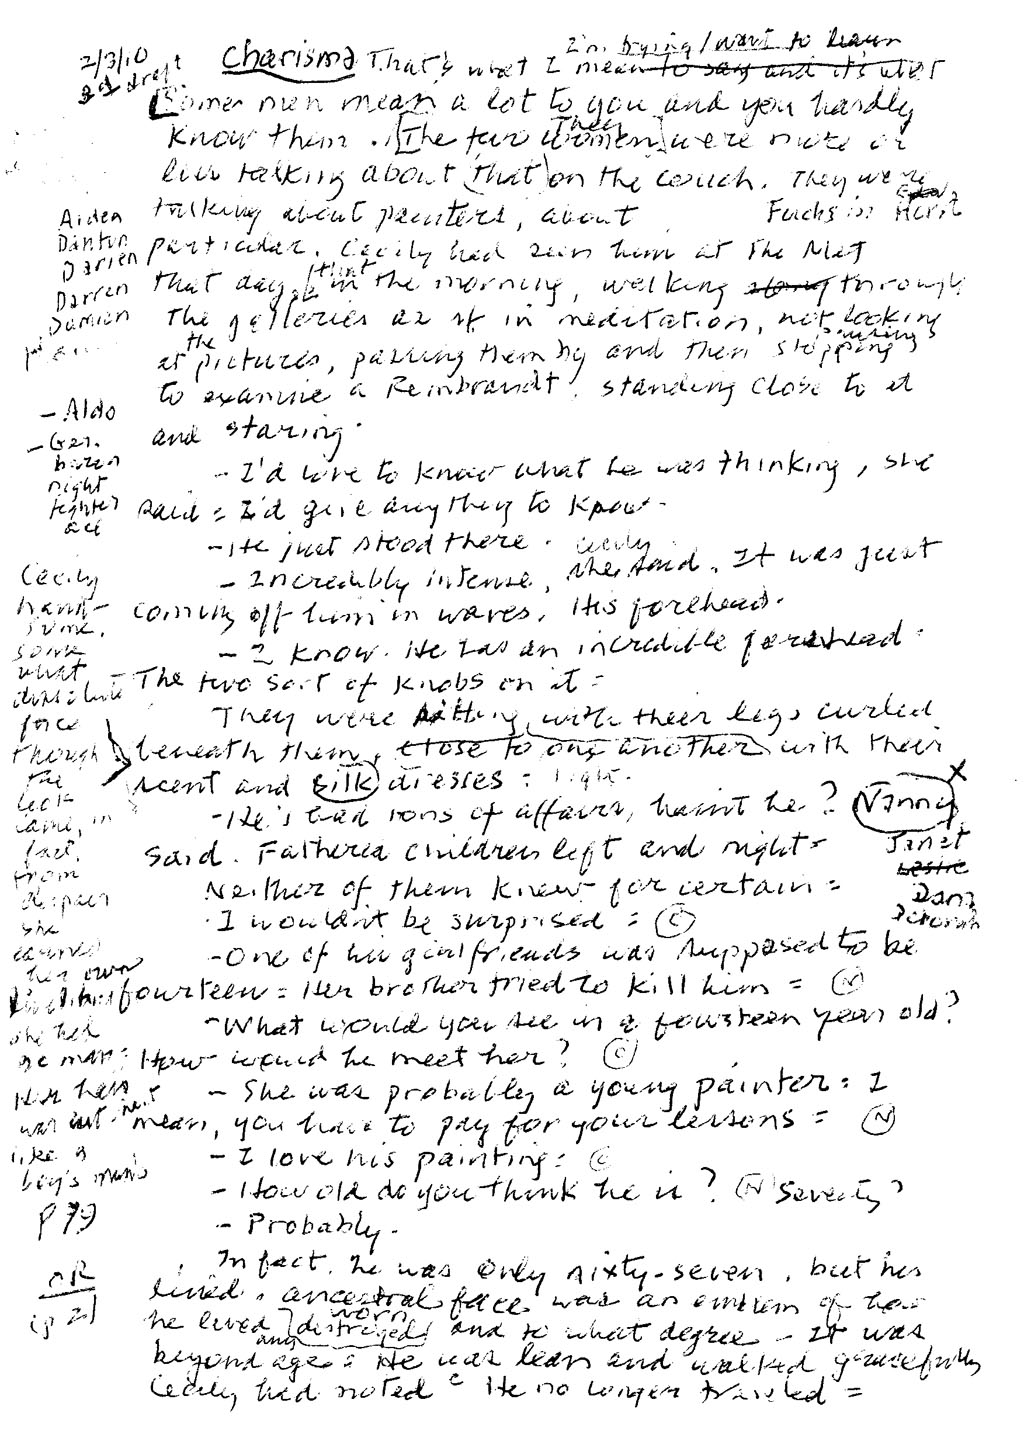 2/3/10
2d draft
Charisma
I'm trying / want to learn
That's what I mean to say and it's what
Some men mean a lot to you and you hardly
know them. [The two women] were more or
They
less talking about (that) on the couch. They were
talking about painters, about Fuchs in
particular. Cecily had seen him at The Met
that day, in the morning, walking along through
that
the galleries as if in meditation, not looking
at pictures, passing them by and then stopping
the
pausing
to examine a Rembrandt, standing close to it
and staring.
- I'd love to know what he was thinking, she
said = I'd give anything to know.
- He just stood there.
- Incredibly intense, she said. It was just
Cecily
coming off him in waves. His forehead.
- I know. He has an incredible forehead.
- The two sort of knobs on it =
They were sitting with their legs curled
beneath them, close to one another with their
scent and silk dresses = light.
- He's had tons of affairs, hasn't he? Nanny
said. Fathered children left and right =
Neither of them knew for certain =
- I wouldn't be surprised = C
- One of his girlfriends was supposed to be
fourteen = Her brother tried to kill him = N
- What would you see in a fourteen year old?
How would he meet her? C
- She was probably a young painter = I
mean, you have to pay for your lessons = N
- I love his painting = C
- How old do you think he is? N Seventy?
- Probably.
In fact, he was only sixty-seven, but his
lined, ancestral face was an emblem of how
he lived [destroyed] and to what degree - It was
worn
beyond age = He was lean and walked gracefully
Cecily had noted = He no longer traveled =
Aiden
Danton
Darien
Darren
Damien
- Aldo
- Ger.
born
night
fighter
ace
Cecily
hand-
some,
some
what
dissolute
face
though
the
look
came, in
fact,
from
despair
she
earned
her own
she had
no man;
Her hair
was cut
like a
boy's
p 79
OR
(p 2)
Janet
Leslie
Dana
Deborah